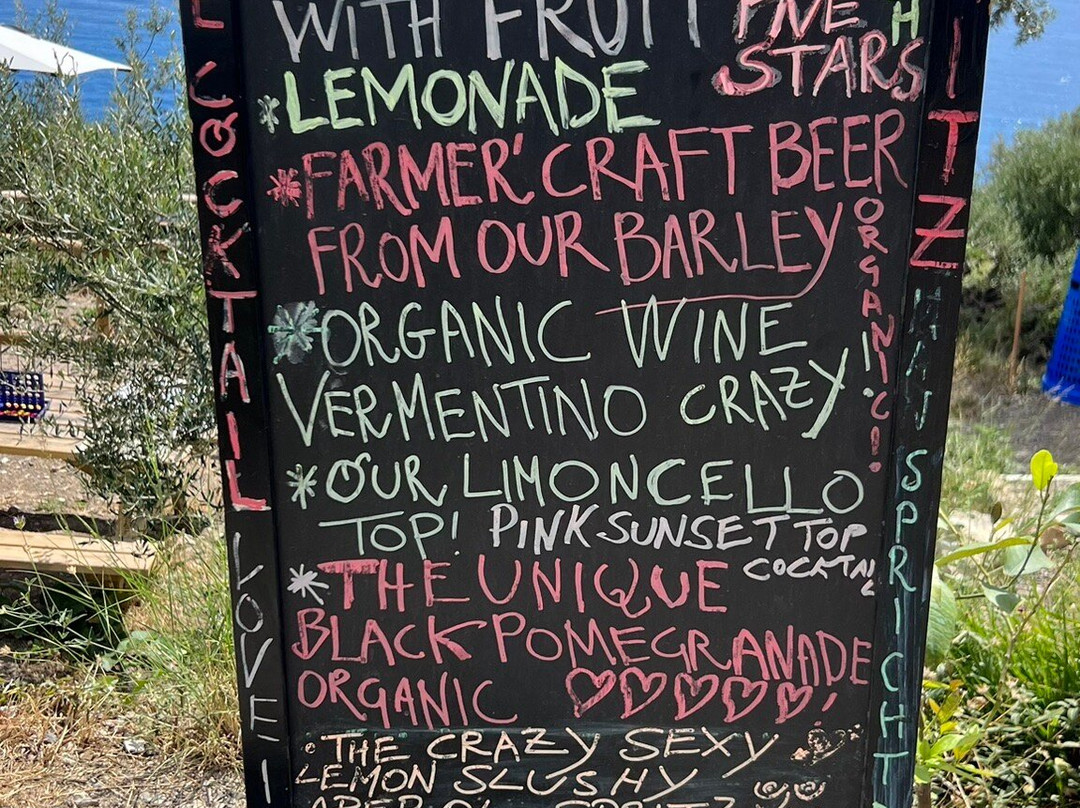 WITH FRUIT
FIVE
STARS
* LEMONADE
* FARMER' CRAFT BEER
FROM OUR BARLEY
ORGANIC!
* ORGANIC WINE
VERMENTINO CRAZY
* OUR LIMONCELLO
TOP! PINK SUNSET TOP
COCKTAIL
* THE UNIQUE
BLACK POMEGRANADE
ORGANIC ♡♡♡♡♡!
• THE CRAZY SEXY
LEMON SLUSHY
APEROL SPRITZ
L COCKTAIL
LOVE
H
ITZ
SPRICHT